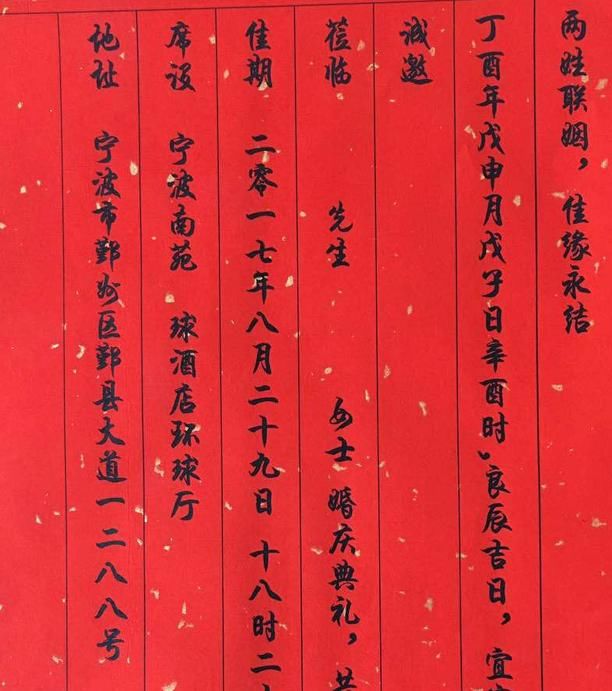 两姓联姻，佳缘永结
丁酉年戊申月戊子日辛酉时，良辰吉日，宜
诚邀
莅临 先生 女士 婚庆典礼，共
佳期 二零一七年八月二十九日 十八时二十
席设 宁波南苑 球酒店环球厅
地址 宁波市鄞州区鄞县大道一二八八号